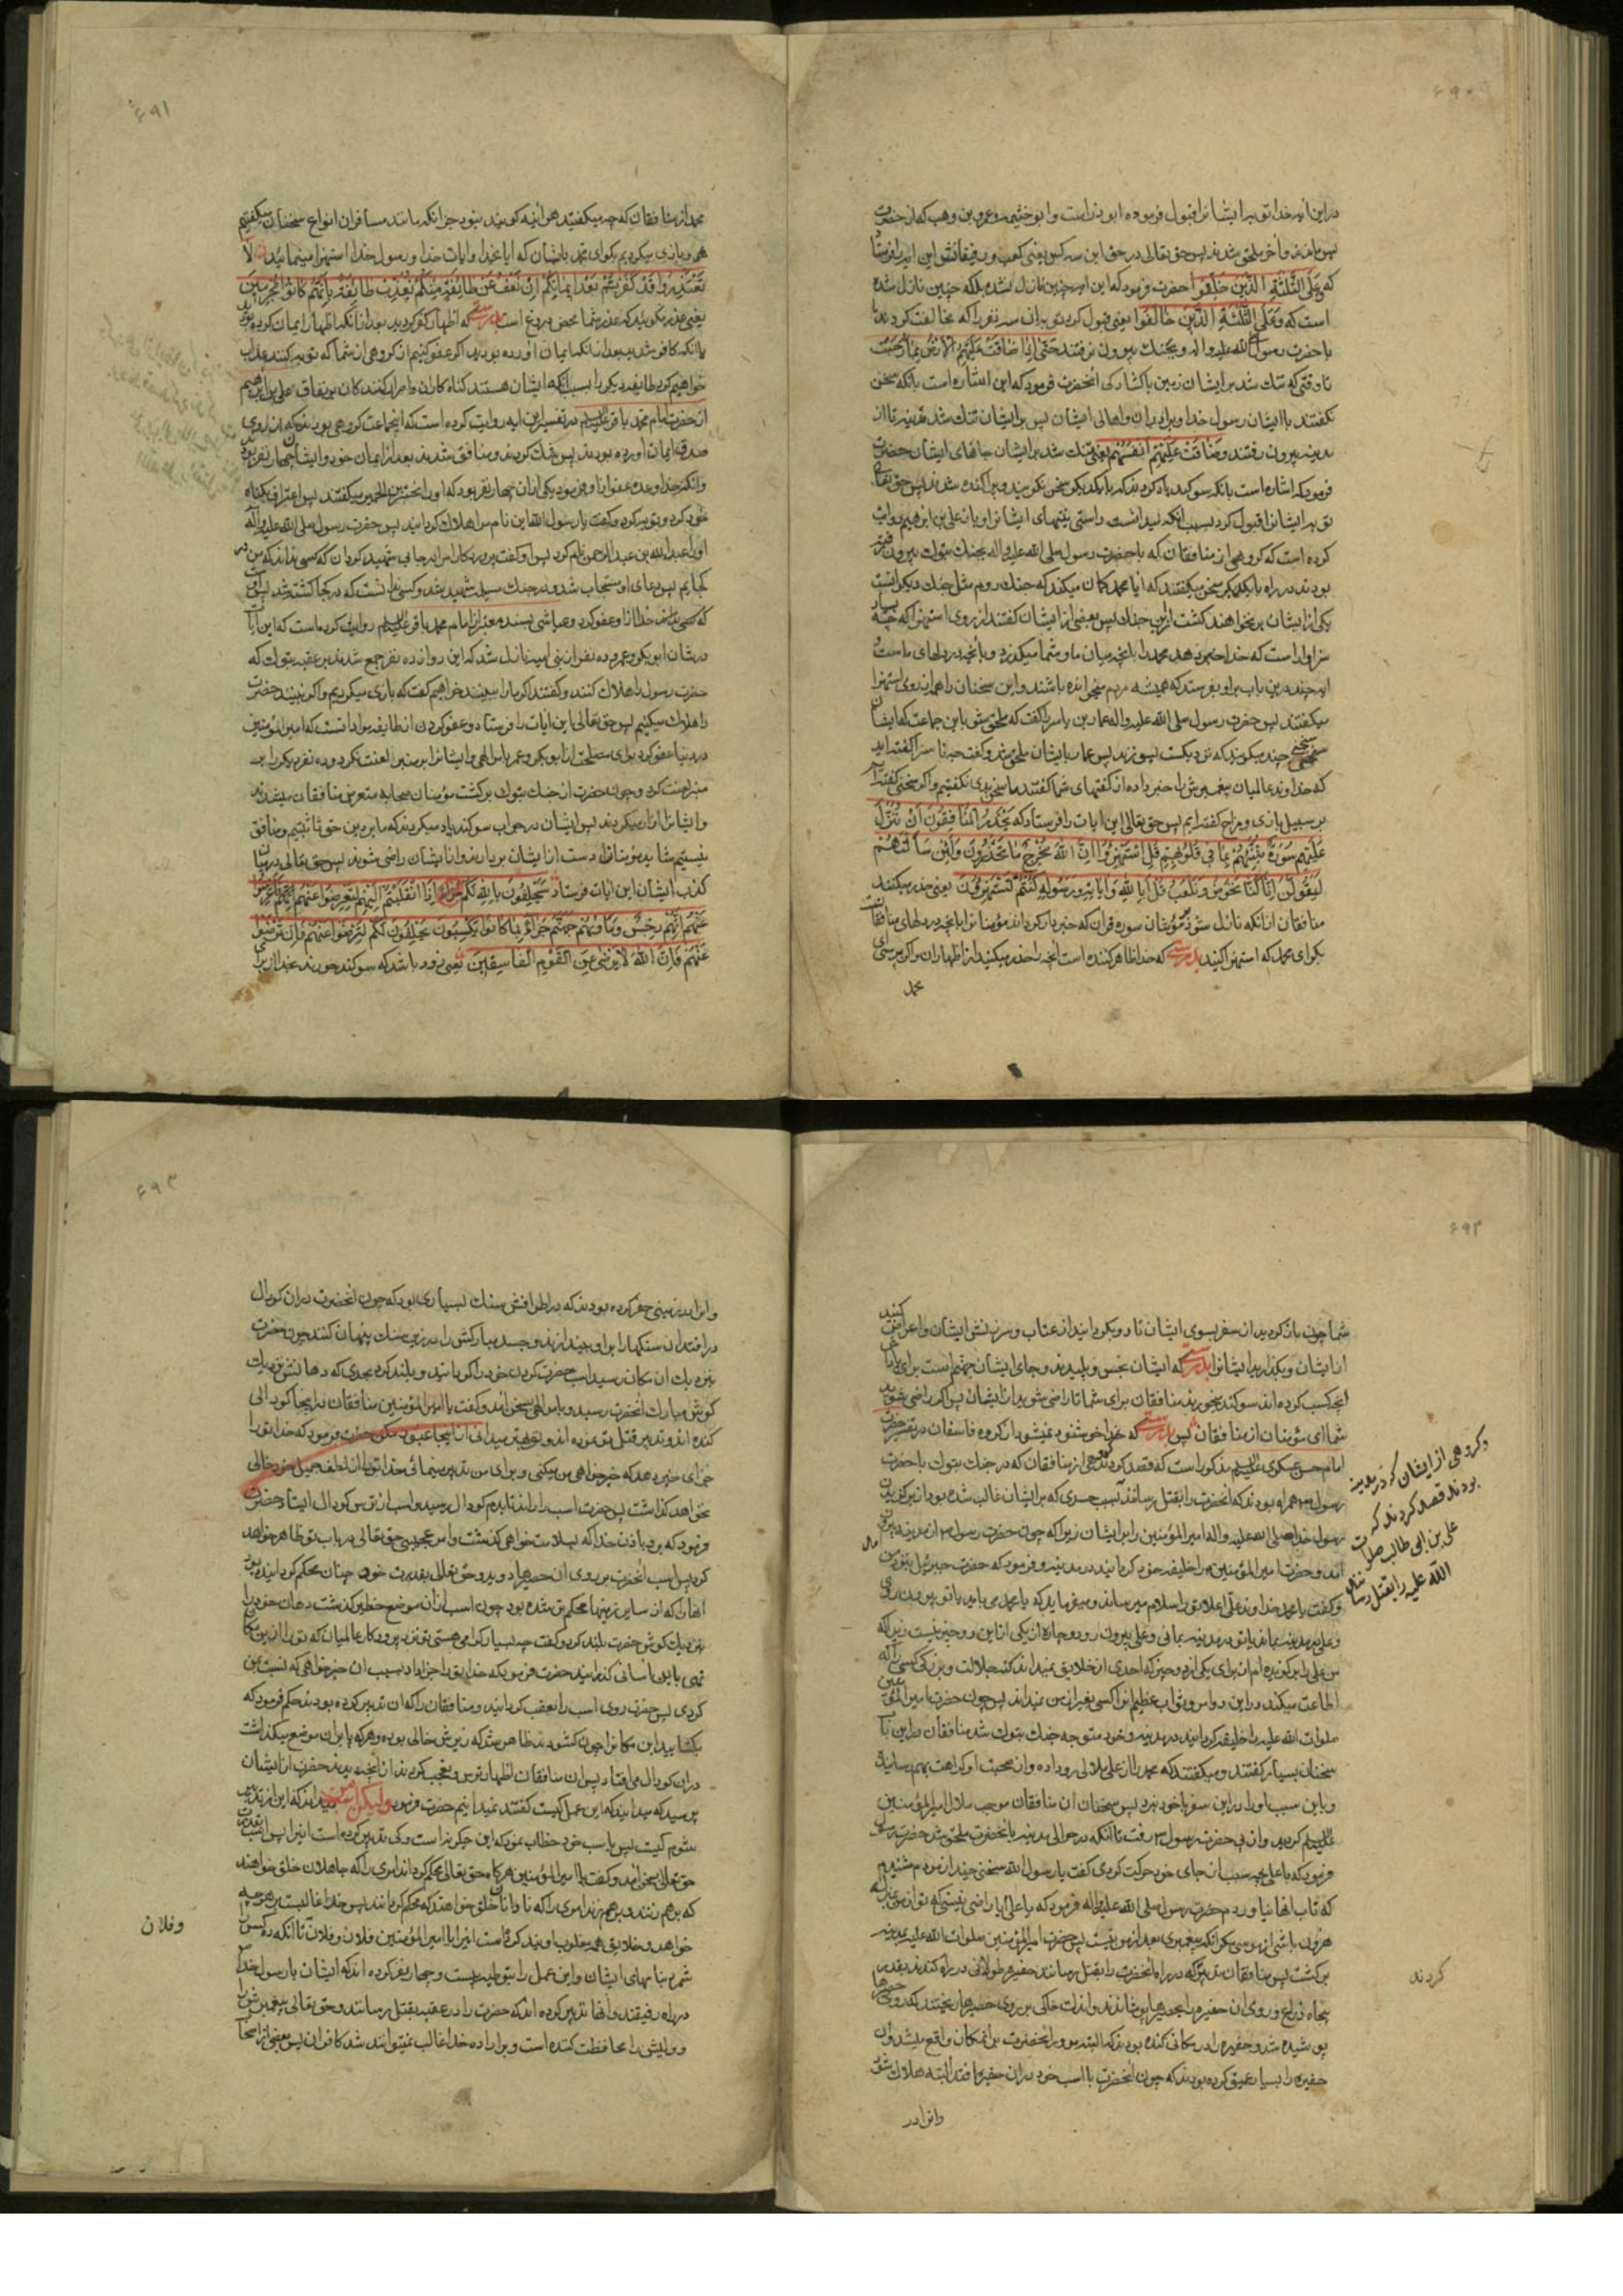 ۶۹۰
در این آیه خدا توبه ایشانرا قبول فرموده ابوذر است و ابو خثیمه و عمرو بن وهب که از حضرت
پس ماندند و آخر ملحق شدند پس حق تعالی در حق این سه کس یعنی کعب و رفیقانش این آیه را فرستاد
که وَعَلَی الثَّلٰثَةِ الَّذِینَ خُلِّفُوا حضرت فرمود که این آیه چنین نازل نشده بلکه چنین نازل شده
است که وَعَلَی الثَّلٰثَةِ الَّذِینَ خَالَفُوا یعنی قبول کرد توبه آن سه نفر را که مخالفت کردند
با حضرت رسول صلی الله علیه واله و بجنک بیرون نرفتند حَتّٰی اِذَا ضَاقَتْ عَلَیْهِمُ الْاَرْضُ بِمَا رَحُبَتْ
تا وقتی که تنک شد بر ایشان زمین با کشادکی انحضرت فرمود که این اشاره است بانکه سخن
نکفتند با ایشان رسول خدا و برادران و اهالی ایشان پس بر ایشان تنک شد مدینه تا از
مدینه بیرون رفتند وَضَاقَتْ عَلَیْهِمْ اَنْفُسُهُمْ یعنی تنک شد بر ایشان جانهای ایشان حضرت
فرمود که اشاره است بانکه سوکند یاد کردند که با یکدیکر سخن نکویند و پراکنده شدند پس حق تعالی
توبه ایشانرا قبول کرد بسبب انکه میدانست راستی نیتهای ایشانرا و باز علی بن ابرهیم روایت
کرده است که کروهی از منافقان که با حضرت رسول صلی الله علیه واله بجنک تبوک بیرون رفته
بودند در راه با یکدیکر سخن میکفتند که ایا محمد کمان میکند که جنک روم مثل جنک دیکرانست
یکی از ایشان بر نخواهند کشت ازین جنک پس بعضی از ایشان کفتند از روی استهزا که چه بسیار
سزاوار است که خدا خبر دهد محمد را بانچه میان ما و شما میکذرد و بانچه در دلهای ماست و
ایه چند درین باب بر او بفرستد که همیشه مردم میخوانده باشند و این سخنان را همه از روی استهزا
میکفتند پس حضرت رسول صلی الله علیه واله عمار بن یاسر را کفت که ملحق شو باین جماعت که ایشان
سخنی چند میکویند که نزدیکست بسوزند پس عمار بایشان ملحق شد و کفت چه سزا کفته اید
که خداوند عالمیان پیغمبرش را خبر داده از کفتهای شما کفتند ما سخن بدی نکفتیم و اکر سخنی کفته ایم
بر سبیل بازی و مزاح کفته ایم پس حق تعالی این ایات را فرستاد که یَحْذَرُ الْمُنَافِقُونَ اَنْ تُنَزَّلَ
عَلَیْهِمْ سُورَةٌ تُنَبِّئُهُمْ بِمَا فِی قُلُوبِهِمْ قُلِ اسْتَهْزِؤُا اِنَّ اللّٰهَ مُخْرِجٌ مَا تَحْذَرُونَ وَلَئِنْ سَاَلْتَهُمْ
لَیَقُولُنَّ اِنَّمَا کُنَّا نَخُوضُ وَنَلْعَبُ قُلْ اَبِاللّٰهِ وَاٰیَاتِهِ وَرَسُولِهِ کُنْتُمْ تَسْتَهْزِؤُنَ یعنی حذر میکنند
منافقان از انکه نازل شود بر مؤمنان سوره قران که خبردار کرداند مؤمنانرا بانچه در دلهای منافقانست
بکو ای محمد که استهزا کنید بدرستی که خدا ظاهر کننده است انچه را حذر میکنید از اظهار ان و اکر بپرسی
محمد
۶۹۱
محمد از منافقان که چه میکفتید هر اینه کویند نبود جز انکه مانند مسافران انواع سخنان میکفتیم
و بازی میکردیم بکو ای محمد بایشان که ایا بخدا و ایات خدا و رسول خدا استهزا مینمائید لَا
تَعْتَذِرُوا قَدْ کَفَرْتُمْ بَعْدَ اِیمَانِکُمْ اِنْ نَعْفُ عَنْ طَائِفَةٍ مِنْکُمْ نُعَذِّبْ طَائِفَةً بِاَنَّهُمْ کَانُوا مُجْرِمِینَ
یعنی عذر مکوئید که عذر شما محض دروغ است بدرستی که اظهار کفر کردید بعد از انکه اظهار ایمان کرده بودید
یا انکه کافر شدید بعد از انکه ایمان اورده بودید اکر عفو کنیم از کروهی از شما که توبه کنند عذاب
خواهیم کرد طایفه دیکر را بسبب انکه ایشان هستند کناه کاران و اصرار کنندکان بر نفاق علی بن ابرهیم
از حضرت امام محمد باقر علیه السلم در تفسیر این ایه روایت کرده است که اینجماعت کروهی بودند که از روی
صدق ایمان اورده بودند پس شک کردند و منافق شدند بعد از ایمان خود و ایشان چهار نفر بودند
وانکه خدا وعده عفو او فرمود یکی از ان چهار نفر بود که او را مختبر بن الحمیر میکفتند پس اعتراف بکناه
خود کرد و توبه کرد و کفت یا رسول الله این نام مرا هلاک کردانید پس حضرت رسول صلی الله علیه واله
او را عبدالله بن عبدالرحمن نام کرد پس او کفت پروردکارا مرا در جائی شهید کردان که کسی نداند که من در
کجایم پس دعای او مستجاب شد و در جنک مسیلمه شهید شد و کسی ندانست که در کجا کشته شد پس اوست
که حق تعالی از او عفو کرد و عیاشی بسند معتبر از امام محمد باقر علیه السلم روایت کرده است که این ایات
در شان ابوبکر و عمر و ده نفر از بنی امیه نازل شد که این دوازده نفر جمع شدند بر عقبه تبوک که
حضرت رسول را هلاک کنند و کفتند اکر ما را ببینند خواهیم کفت که بازی میکردیم و اکر نبینند حضرت
را هلاک میکنیم پس حق تعالی این ایات را فرستاد
در دنیا عفو کرد برای مصلحت از ابوبکر و عمر بامر الهی و ایشانرا بر منبر لعنت نکرد و ده نفر دیکر را بر
منبر لعنت کرد و چون حضرت از جنک تبوک برکشت مؤمنان صحابه متعرض منافقان میشدند
و ایشانرا ازار میکردند پس ایشان در جواب سوکند یاد میکردند که ما بر دین حق ثابتیم و منافق
نیستیم شاید مؤمنان دست از ایشان بردارند و از ایشان راضی شوند پس حق تعالی در بیان
کذب ایشان این ایات فرستاد سَیَحْلِفُونَ بِاللّٰهِ لَکُمْ اِذَا انْقَلَبْتُمْ اِلَیْهِمْ لِتُعْرِضُوا عَنْهُمْ فَاَعْرِضُوا
عَنْهُمْ اِنَّهُمْ رِجْسٌ وَمَاْوٰیهُمْ جَهَنَّمُ جَزَاءً بِمَا کَانُوا یَکْسِبُونَ یَحْلِفُونَ لَکُمْ لِتَرْضَوْا عَنْهُمْ فَاِنْ تَرْضَوْا
عَنْهُمْ فَاِنَّ اللّٰهَ لَا یَرْضٰی عَنِ الْقَوْمِ الْفَاسِقِینَ یعنی زود باشد که سوکند خورند بخدا از برای
۶۹۲
شما چون باز کردید از سفر بسوی ایشان تا در و بکردانید از عتاب و سرزنش ایشان و اعراض کنید
از ایشان و بکذارید ایشانرا بدرستی که ایشان نجس و پلیدند و جای ایشان جهنم است برای پاداش
انچه کسب کرده اند سوکند میخورند منافقان برای شما تا راضی شوید از ایشان پس اکر راضی شوید
شما ای مؤمنان از منافقان پس بدرستی که خدا خوشنود نمیشود از کروه فاسقان در تفسیر حضرت
امام حسن عسکری علیه السلم مذکور است که قصد کردند کروهی از منافقان که در جنک تبوک با حضرت
رسول ص همراه بودند که انحضرت را بقتل رسانند بسبب حسدی که بر ایشان غالب شده بود از برکزیدن
رسول خدا صلی الله علیه واله امیرالمؤمنین را بر ایشان زیرا که چون حضرت رسول ص از مدینه بیرون
امد و حضرت امیرالمؤمنین را خلیفه خود کردانید در مدینه و فرمود که حضرت جبرئیل بنزد من امد
و کفت یا محمد خداوند علی اعلا تو را سلام میرساند و میفرماید که یا محمد می باید یا تو بیرون روی
و علی در مدینه بماند یا تو در مدینه بمانی و علی بیرون رود و چاره از یکی از این دو چیز نیست زیرا که
من علی را برکزیده ام از برای یکی از دو چیز که احدی از خلایق نمیداند کنه جلالت و بزرکی کسی را که
اطاعت میکند در این دو امر و ثواب عظیم او را کسی بغیر از من نمیداند پس چون حضرت امیر المؤمنین
صلوات الله علیه را خلیفه کردانید در مدینه و خود متوجه جنک تبوک شد منافقان در این باب
سخنان بسیار کفتند و میکفتند که محمد را از علی ملالی رو داده و از صحبت او کراهت بهم رسانیده
و باین سبب او را در این سفر با خود نبرد پس سخنان ان منافقان موجب ملال امیرالمؤمنین
علیه السلم کردید و از پی حضرت رسول ص رفت تا انکه در حوالی مدینه بانحضرت ملحق شد حضرت رسول
فرمود که یا علی بچه سبب از جای خود حرکت کردی کفت یا رسول الله سخنی چند از مردم شنیدم
که تاب انها نیاوردم حضرت رسول صلی الله علیه واله فرمود که یا علی ایا راضی نیستی که تو از من بمنزله
هرون باشی از موسی مکر انکه پیغمبری بعد از من نیست پس حضرت امیرالمؤمنین صلوات الله علیه بمدینه
برکشت پس منافقان تدبیر کردند که در راه انحضرت را بقتل رسانند حفیره طولانی در راه کندند بقدر
پنجاه ذراع و روی ان حفیره را بحصیرها پوشانیدند و اندک خاکی بر روی حصیرها ریختند که روی حصیرها
پوشیده شد و حفیره را در مکانی کنده بودند که البته مرور انحضرت بر انمکان واقع میشد و ان
حفیره را بسیار عمیق کرده بودند که چون انحضرت با اسب خود در ان حفیره افتد البته هلاک شود
و انرا در
وکروهی از ایشان که در مدینه
بودند قصد کردند که
علی بن ابی طالب صلوات
الله علیه را بقتل رسانند
کردند
۶۹۳
و انرا در زمینی حفر کرده بودند که در اطرافش سنک بسیاری بود که چون انحضرت در ان کودال
در افتد ان سنکها را بر او بیندازند و جسد مبارکش را در زیر سنک پنهان کنند چون حضرت
بنزدیک ان مکان رسید اسب حضرت کردن خود را کردانید و بلند کرد بحدی که دهانش نزدیک
کوش مبارک انحضرت رسید و بامر الهی بسخن امد و کفت یا امیرالمؤمنین منافقان در اینجا کودالی
کنده اند و تدبیر قتل تو نموده اند و تو بهتر میدانی از اینجا عبور مکن حضرت فرمود که خدا تو را
جزای خیر دهد که خیرخواهی من میکنی و برای من تدبیر مینمائی خدا تو را از لطف جمیل خود خالی
نخواهد کذاشت پس حضرت اسب را راند تا بدم کودال رسید و اسب از ترس کودال ایستاد حضرت
فرمود که برو باذن خدا که بسلامت خواهی کذشت و امر عجیبی حق تعالی در باب تو ظاهر خواهد
کرد پس اسب انحضرت بر روی ان حصیرها دوید و حق تعالی بقدرت خود چنان محکم کردانیده بود
انها را که از سایر زمینها محکم تر شده بود چون اسب از ان موضع خطیر کذشت دهان خود را
بنزدیک کوش حضرت بلند کرد و کفت چه بسیار کرامی هستی تو نزد پروردکار عالمیان که تو را از این مکان
تهی باین اسانی کذرانید حضرت فرمود که خدا تو را جزا داد بسبب ان خیرخواهی که نسبت بمن
کردی پس حضرت روی اسب را بعقب کردانید و منافقان را که ان تدبیر کرده بودند حکم فرمود که
بکشایید این مکانرا چون کشودند ظاهر شد که زیرش خالی بوده و هر که پا بر ان موضع میکذاشت
در ان کودال می افتاد پس ان منافقان اظهار ترس و تعجب کردند از انچه دیدند حضرت از ایشان
پرسید که میدانید که این عمل کیست کفتند نمیدانیم حضرت فرمود ولیکن اسب من میداند که این از تدبیر
شوم کیست پس باسب خود خطاب نمود که این چکونه است و کی تدبیر کرده است اینرا پس اسب بقدرت
حق تعالی بسخن امد و کفت یا امیرالمؤمنین هرکاه حق تعالی محکم کرداند امری را که جاهلان خلق خواهند
که برهم زنند و برهم زند امری را که نادانان خلق خواهند که محکم کردانند پس خدا غالبست بر هر چه
خواهد و خلایق همه مغلوب اویند کرده است اینرا یا امیرالمؤمنین فلان و فلان تا انکه ده کس را
شمرد بنامهای ایشان و این عمل را بتوطئه بیست و چهار نفر کرده اند که ایشان با رسول خدا
در راه رفیقند و انها تدبیر کرده اند که حضرت را در عقبه بقتل رسانند و حق تعالی پیغمبرش را
و ولیش را محافظت کننده است و بر اراده خدا غالب نمیتوانند شد کافران پس بعضی از اصحاب
وفلان